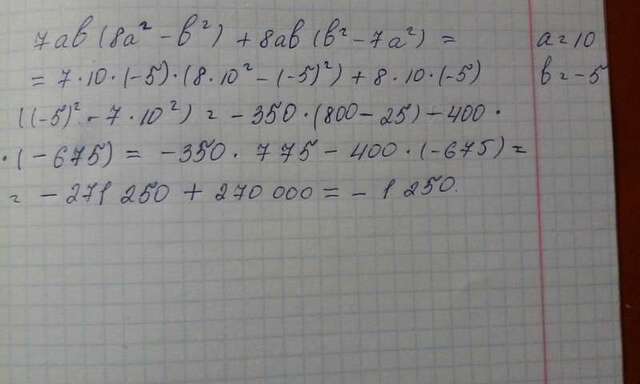 7ab(8a² - b²) + 8ab(b² - 7a²) =
a = 10
= 7·10·(-5)·(8·10² - (-5)²) + 8·10·(-5)
b = -5
((-5)² - 7·10²) = -350·(800 - 25) - 400·
·(-675) = -350·775 - 400·(-675) =
= -271 250 + 270 000 = -1 250.